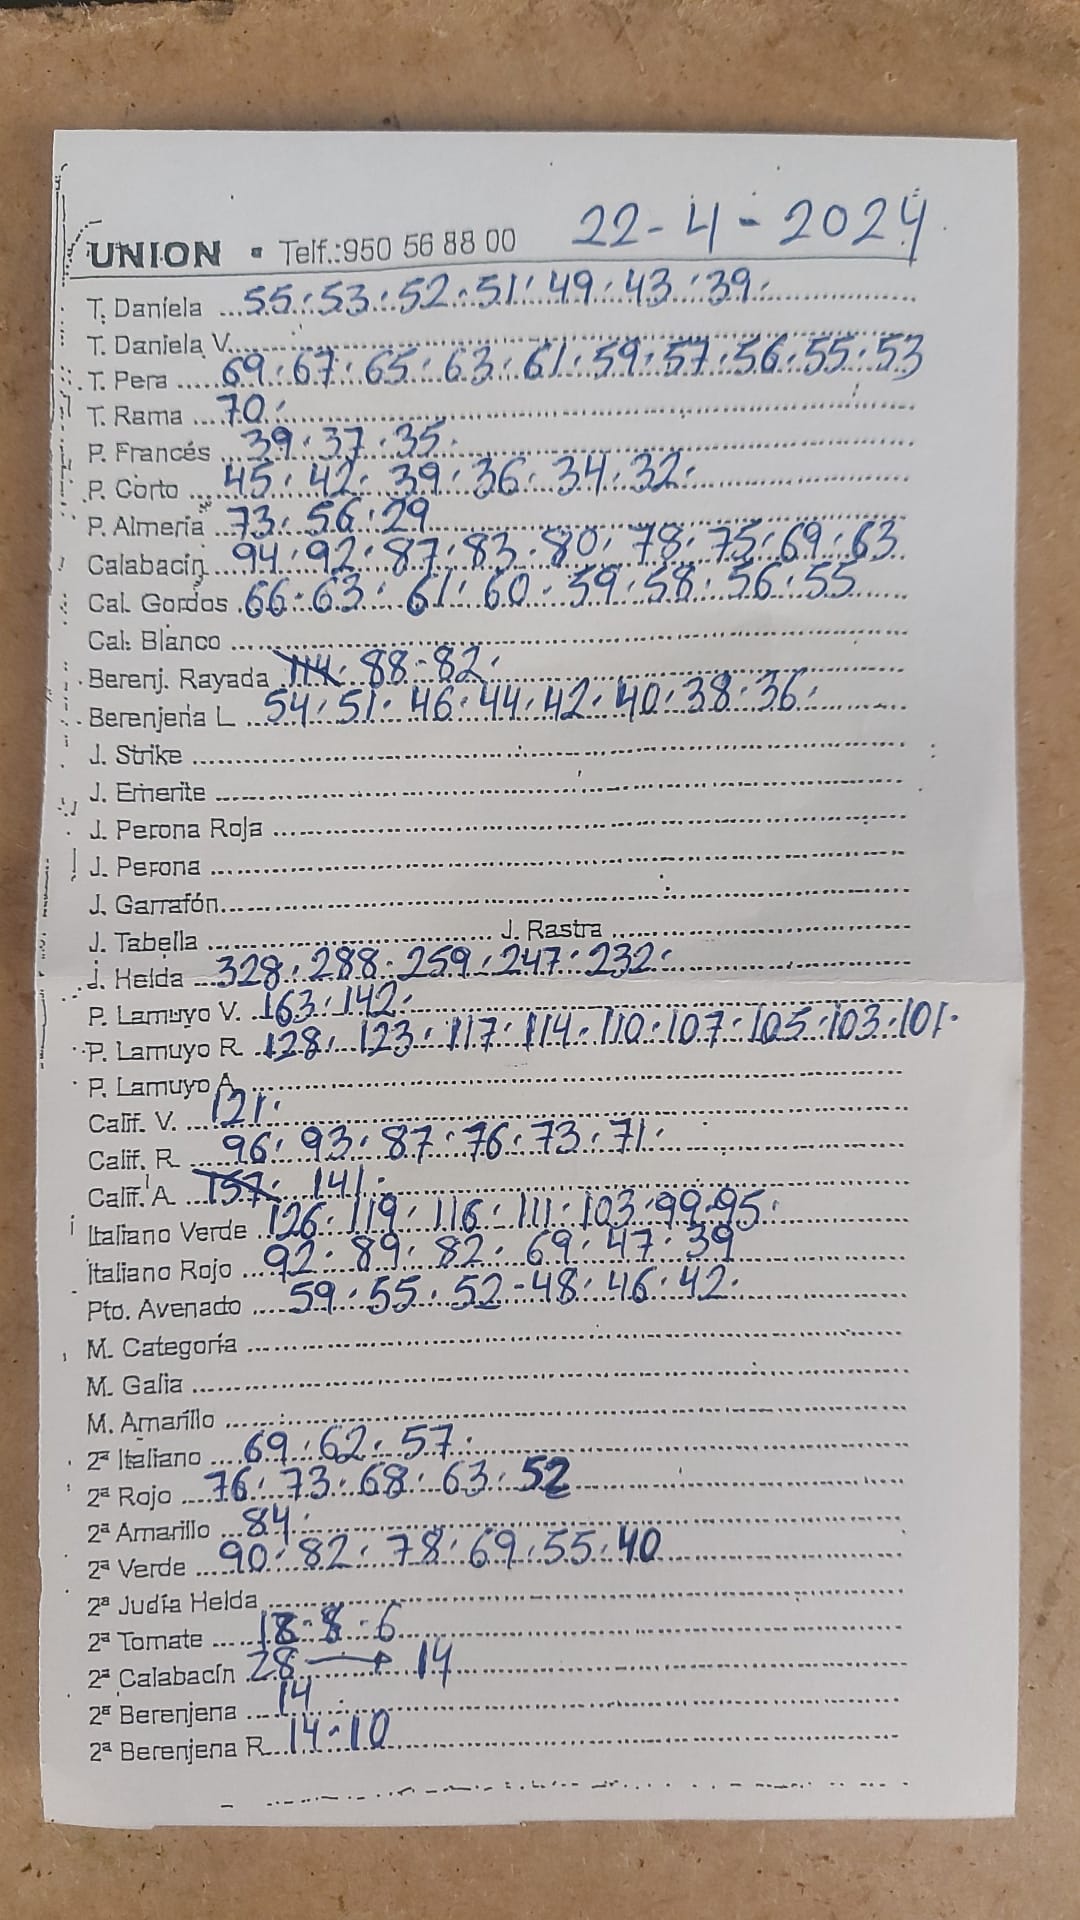 UNION • Telf.:950 56 88 00 22-4-2024
T. Daniela ...55.53.52.51.49.43.39.
T. Daniela V.
T. Pera .....69.67.65.63.61.59.57.56.55.53
T. Rama ...70.
P. Francés ...39.37.35.
P. Corto ...45.42.39.36.34.32.
P. Almería ..73.56.29
Calabacín...94.92.87.83.80.78.75.69.63
Cal. Gordos .66.63.61.60.59.58.56.55
Cal. Blanco
Berenj. Rayada 114.88-82.
Berenjena L ...54.51.46.44.42.40.38.36.
J. Strike
J. Emerite
J. Perona Roja
J. Perona
J. Garrafón
J. Tabella J. Rastra
J. Helda ...328.288.259.247.232.
P. Lamuyo V. 163.142.
P. Lamuyo R 128.123.117.114.110.107.105.103.101.
P. Lamuyo A
Calif. V. 121.
Calif. R 96.93.87.76.73.71.
Calif. A 157. 141.
Italiano Verde 126.119.116.111.103.99.95.
Italiano Rojo 92.89.82.69.47.39
Pto. Avenado 59.55.52-48.46.42.
M. Categoría
M. Galia
M. Amarillo
2ª Italiano 69.62.57.
2ª Rojo 76.73.68.63.52
2ª Amarillo 84.
2ª Verde 90.82.78.69.55.40
2ª Judía Helda
2ª Tomate 18-8-6
2ª Calabacín 28 → 14
2ª Berenjena 14
2ª Berenjena R 14-10